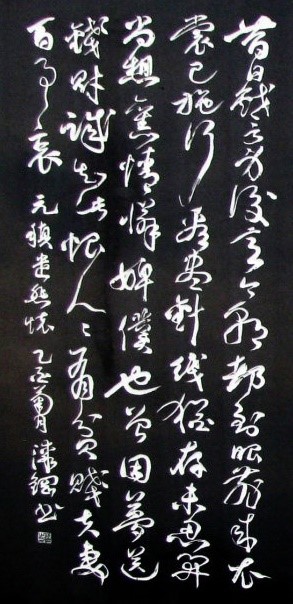 昔日戲言身後意今朝都到眼前來衣
裳已施行看盡針線猶存未忍開
尚想舊情憐婢僕也曾因夢送
錢財誠知此恨人〻有貧賤夫妻
百事哀 元稹遣悲懷 乙 月 鋼书